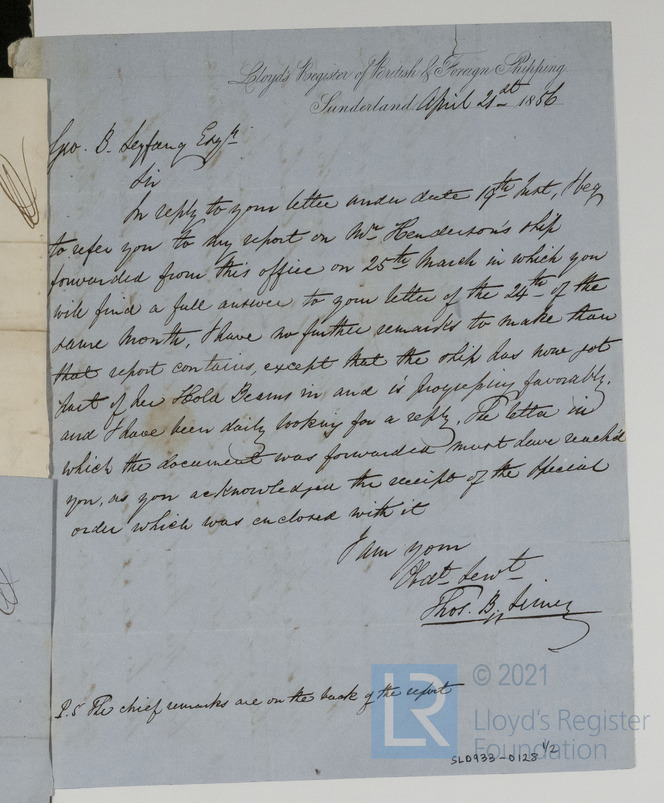 Lloyd's Register of British & Foreign Shipping
Sunderland April 21st 1856
Geo. B. Seyfang Esqr
Sir
In reply to your letter under date 19th Inst, I beg
to refer you to my report on Mr Henderson's ship
forwarded from this office on 25th March in which you
will find a full answer to your letter of the 24th of the
same month. I have no further remarks to make than
that report contains, except that the ship has now got
part of her Hold Beams in and is progressing favorably.
and I have been daily looking for a reply. The letter in
which the document was forwarded must have reach'd
you, as you acknowledged the receipt of the Special
order which was enclosed with it
I am your
Obdt Servt
Thos. B.
P.S The chief remarks are on the back of the report
© 2021
LR
Lloyd's Register
Foundation
SLD933-0128 1/2